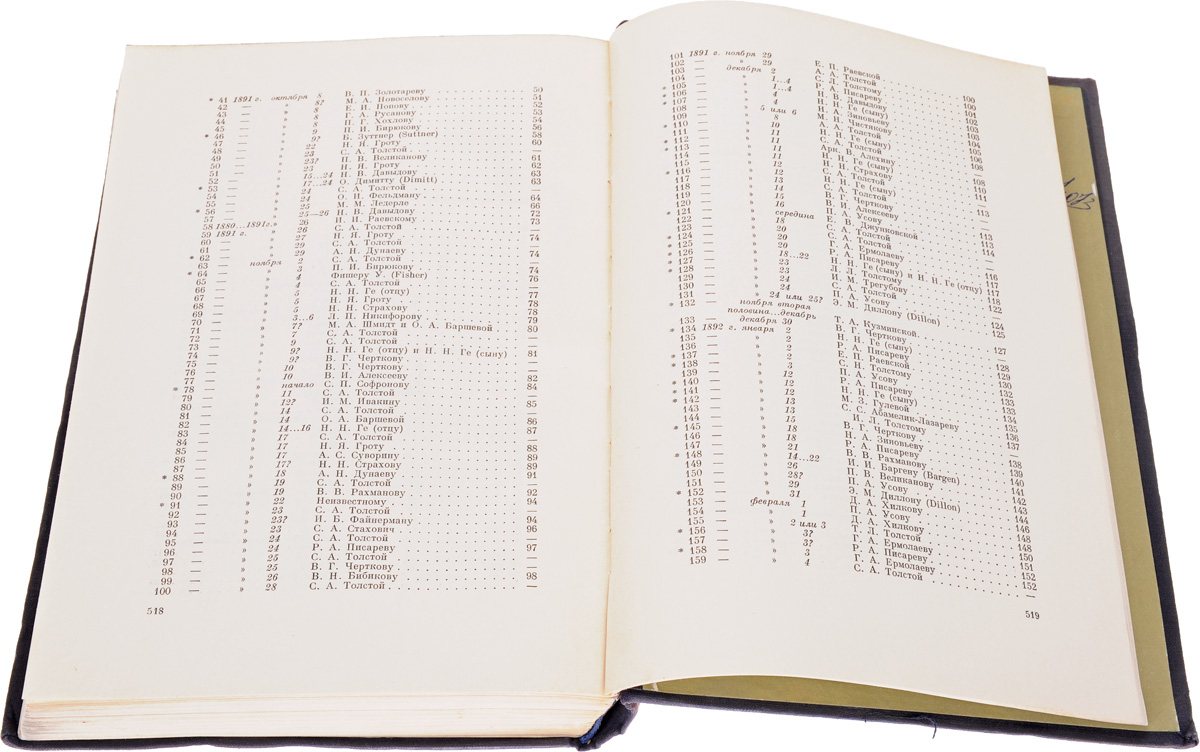 * 41 1891 г. октября 8 В. П. Золотареву 50
42 — » 8? М. А. Новоселову 51
43 — » 8 Е. И. Попову 52
44 — » 8 Г. А. Русанову 53
45 — » 8 Н. Г. Хохлову 54
* 46 — » 9 П. И. Бирюкову 56
47 — » 9? Б. Зуттнер (Suttner) 58
48 — » 22 Н. Я. Гроту 60
49 — » 23 С. А. Толстой —
50 — » 23? П. В. Великанову 61
51 — » 23 Н. Я. Гроту 62
52 — » 15...24 Н. В. Давыдову 63
* 53 — » 17...24 О. Димитту (Dimitt) 63
54 — » 24 С. А. Толстой —
55 — » 24 О. И. Фельдману 64
* 56 — » 25 М. М. Ледерле 66
57 — » 25—26 Н. В. Давыдову 72
58 1880...1891г.» 26 И. И. Раевскому 73
59 1891 г. » 26 С. А. Толстой —
60 — » 27 Н. Я. Гроту 74
61 — » 29 С. А. Толстой —
* 62 — » 29 А. Н. Дунаеву 74
63 — ноября 2 С. А. Толстой —
* 64 — » 3 П. И. Бирюкову 74
65 — » 4 Фишеру У. (Fisher) 76
66 — » 4 С. А. Толстой —
67 — » 5 Н. Н. Ге (отцу) 77
68 — » 5 Н. Я. Гроту 78
69 — » 5 Н. Н. Страхову 78
70 — » 3...6 Л. П. Никифорову 79
71 — » 7? М. А. Шмидт и О. А. Баршевой 80
72 — » 7 С. А. Толстой —
73 — » 9 С. А. Толстой —
74 — » 9? Н. Н. Ге (отцу) и Н. Н. Ге (сыну) 81
75 — » 9? В. Г. Черткову —
76 — » 10 В. Г. Черткову —
77 — » 10 В. И. Алексееву 82
* 78 — » начало С. П. Софронову 84
79 — » 11 С. А. Толстой —
80 — » 12? И. М. Ивакину 85
81 — » 14 С. А. Толстой —
82 — » 14 О. А. Баршевой 86
83 — » 14...16 Н. Н. Ге (отцу) 87
84 — » 17 С. А. Толстой —
85 — » 17 Н. Я. Гроту 88
86 — » 17 А. С. Суворину 89
87 — » 17? Н. Н. Страхову 89
* 88 — » 18 А. Н. Дунаеву 91
89 — » 19 С. А. Толстой —
90 — » 19 В. В. Рахманову 92
* 91 — » 22 Неизвестному 94
92 — » 23 С. А. Толстой —
93 — » 23? И. Б. Файнерману 94
94 — » 23 С. А. Стахович 96
95 — » 24 С. А. Толстой —
96 — » 24 Р. А. Писареву 97
97 — » 25 С. А. Толстой —
98 — » 25 В. Г. Черткову —
99 — » 26 В. Н. Бибикову 98
100 — » 28 С. А. Толстой —
518
101 1891 г. ноября 29 Е. П. Раевской
102 — » 29 А. А. Толстой
103 — декабря 2 С. Л. Толстому 100
* 104 — » 1...4 Р. А. Писареву 100
* 105 — » 1...4 Н. В. Давыдову 101
* 106 — » 4 Н. Н. Ге (сыну) 102
* 107 — » 4 А. Н. Зиновьеву 103
108 — » 5 или 6 М. Н. Чистякову
109 — » 8 А. А. Толстой
* 110 — » 10 Н. Н. Ге (сыну)
111 — » 11 С. А. Толстой
* 112 — » 11 Арк. В. Алехину
* 113 — » 11 Н. Н. Ге (сыну)
114 — » 11 Н. Н. Страхову
115 — » 12 С. А. Толстой
* 116 — » 12 Н. Н. Ге (сыну)
117 — » 13 С. А. Толстой
118 — » 14 В. Г. Черткову
119 — » 15 В. И. Алексееву
120 — » 16 П. А. Усову
* 121 — » середина Е. В. Джунковской
122 — » 18 С. А. Толстой
123 — » 20 С. А. Толстой
* 124 — » 20 Г. А. Ермолаеву
* 125 — » 20 Р. А. Писареву
* 126 — » 18...22 Н. Н. Ге (сыну) и Н. Н. Ге (отцу)
* 127 — » 23 Л. Л. Толстому
* 128 — » 23 И. М. Трегубову
129 — » 24 С. А. Толстой
130 — » 24 П. А. Усову
131 — » 24 или 25? Э. М. Диллону (Dillon)
* 132 — ноября вторая
половина...декабрь Т. А. Кузминской
133 — декабря 30 В. Г. Черткову
* 134 1892 г. января 2 Н. Н. Ге (сыну)
135 — » 2 Р. А. Писареву
136 — » 2 Е. П. Раевской
* 137 — » 2 С. Н. Толстому
* 138 — » 3 П. А. Усову
139 — » 12 Р. А. Писареву
* 140 — » 12 Н. Н. Ге (сыну)
* 141 — » 12 М. З. Гулевой
* 142 — » 13 С. С. Абамелик-Лазареву
143 — » 13 И. Л. Толстому
144 — » 15 В. Г. Черткову
* 145 — » 18 Н. А. Зиновьеву
146 — » 18 Р. А. Писареву
147 — » 21 В. В. Рахманову
* 148 — » 14...22 И. И. Баргену (Bargen)
149 — » 26 П. В. Великанову
150 — » 28? П. А. Усову
151 — » 29 Э. М. Диллону (Dillon)
* 152 — » 31 Д. А. Хилкову
153 — февраля 1 П. А. Усову
154 — » 1 Д. А. Хилкову
155 — » 2 или 3 Т. Л. Толстой
* 156 — » 3? Г. А. Ермолаеву
157 — » 3? Р. А. Писареву
* 158 — » 3 Г. А. Ермолаеву 152
159 — » 4 С. А. Толстой —
519